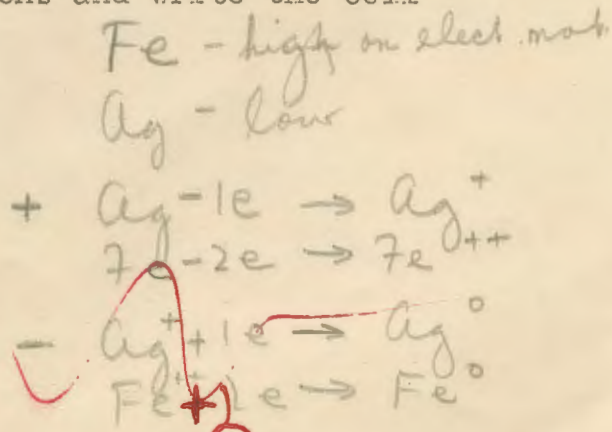 Fe - high on elect. mot.
Ag - low
+ Ag - 1e → Ag⁺
Fe - 2e → Fe⁺⁺
- Ag⁺ + 1e → Ag⁰
Fe⁺⁺ + 2e → Fe⁰